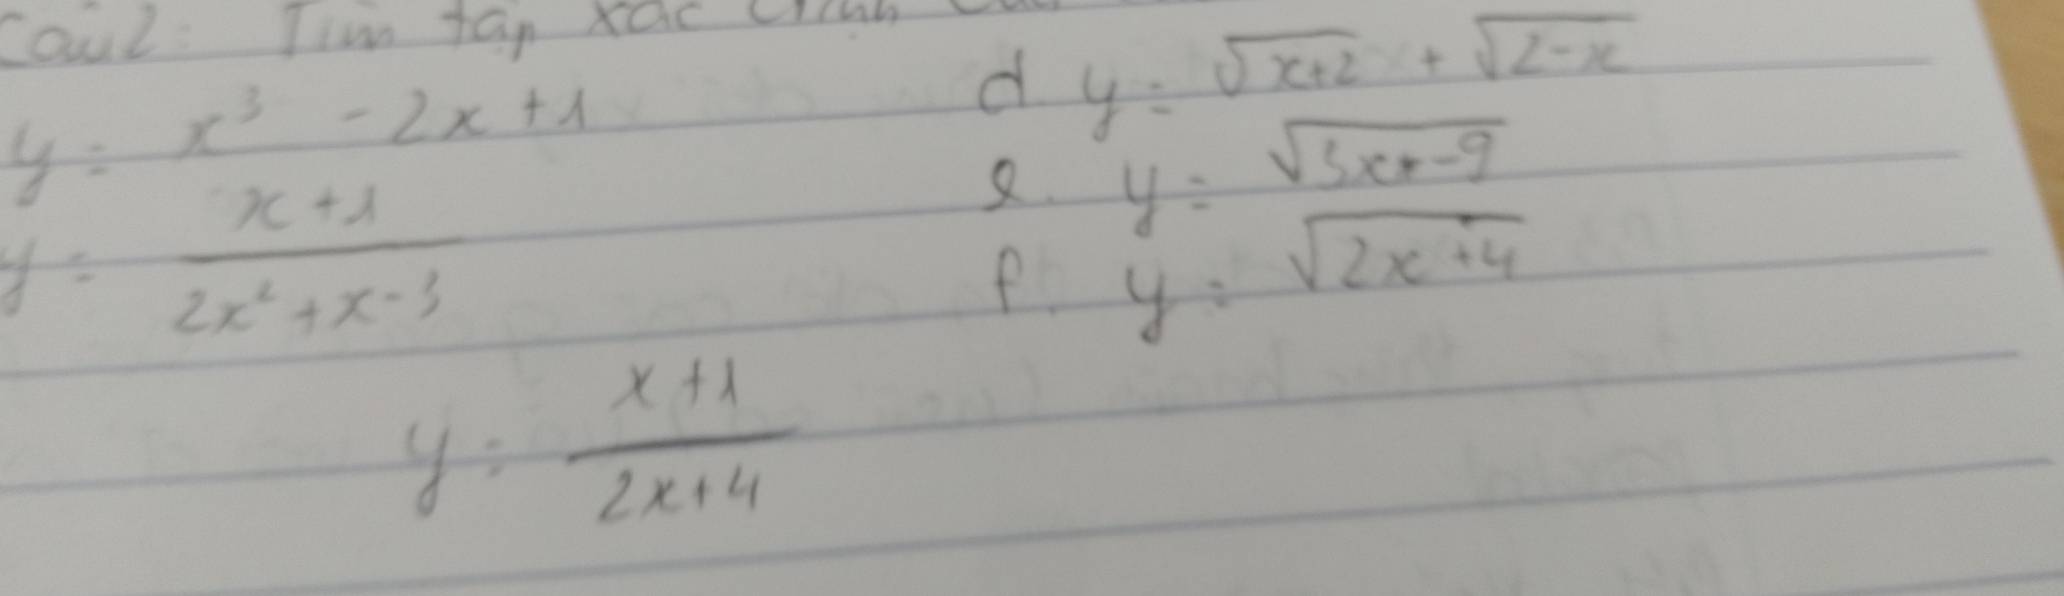 Câu 2: Tìm tập xác định
y = x³ - 2x + 1
y = (x + 1)/(2x² + x - 3)
y = (x + 1)/(2x + 4)
d. y = √(x+2) + √(2-x)
e. y = √(3x-9)
f. y = √(2x+4)